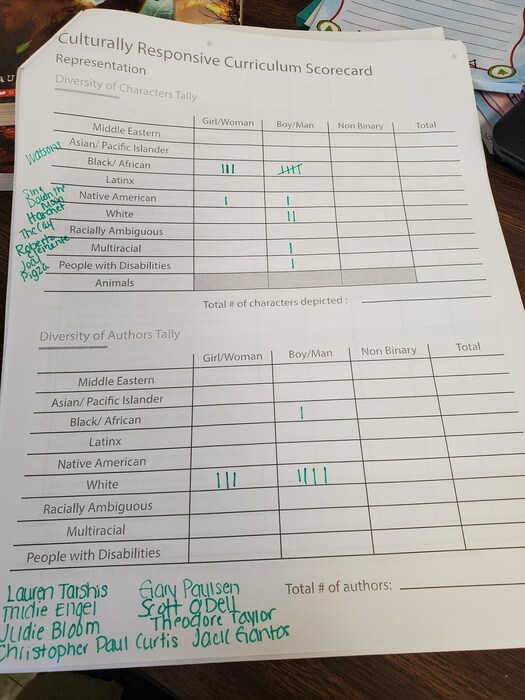 Culturally Responsive Curriculum Scorecard
Representation
Diversity of Characters Tally
Girl/Woman Boy/Man Non Binary Total
Middle Eastern
Asian/ Pacific Islander
Watsons
Black/ African
Latinx
Native American
White
Racially Ambiguous
Multiracial
People with Disabilities
Animals
Sing
Down the
Moon
Hatchet
The Cay
Roberto
Clemente
Joey
Pigza
Total # of characters depicted :
Diversity of Authors Tally
Girl/Woman Boy/Man Non Binary Total
Middle Eastern
Asian/ Pacific Islander
Black/ African
Latinx
Native American
White
Racially Ambiguous
Multiracial
People with Disabilities
Total # of authors:
Lauren Tarshis Gary Paulsen
Midie Engel Scott O'Dell
Judie Bloom Theodore Taylor
Christopher Paul Curtis Jack Gantos